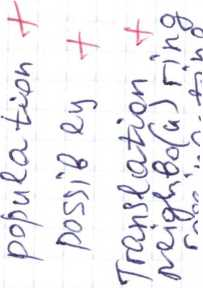 population +
possibly +
Translation +
neighbo(u)ring